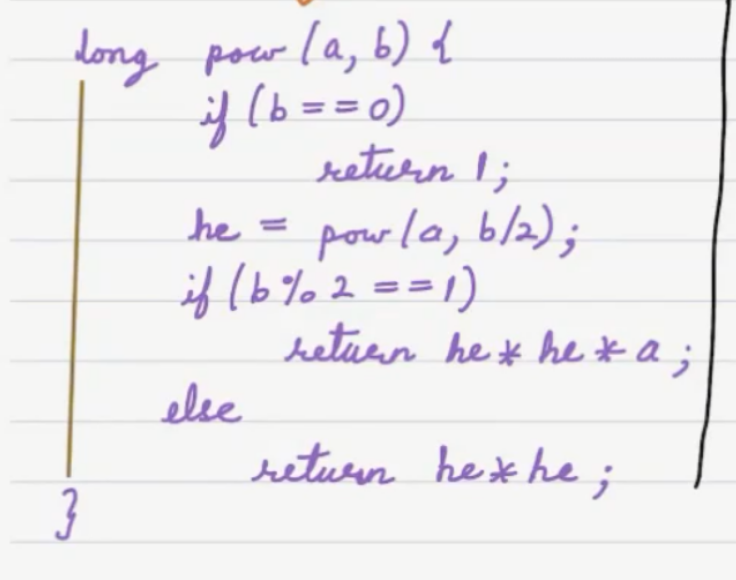 long pow (a, b) {
if (b == 0)
return 1;
he = pow (a, b/2);
if (b % 2 == 1)
return he * he * a ;
else
return he * he ;
}